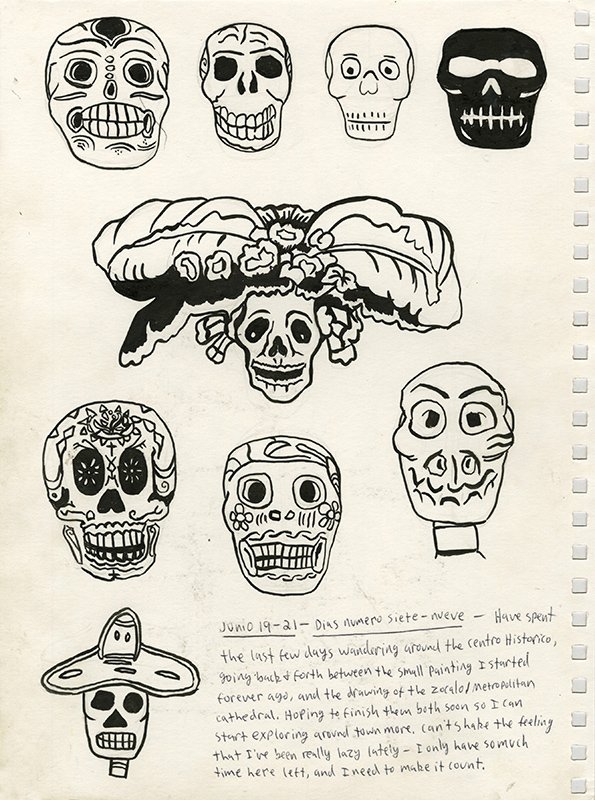 Junio 19-21 - Dias numero siete-nueve - Have spent
the last few days wandering around the Centro Historico,
going back & forth between the small painting I started
forever ago, and the drawing of the zocalo/metropolitan
cathedral. Hoping to finish them both soon so I can
start exploring around town more. Can't shake the feeling
that I've been really lazy lately - I only have so much
time here left, and I need to make it count.